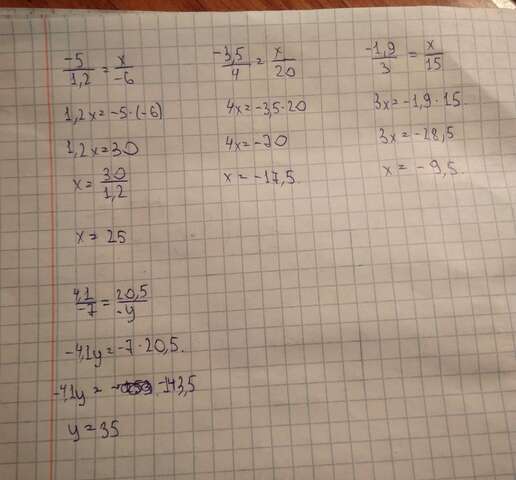 -5/1,2 = x/-6
1,2x = -5·(-6)
1,2x = 30
x = 30/1,2
x = 25
-3,5/4 = x/20
4x = -3,5·20
4x = -70
x = -17,5.
-1,9/3 = x/15
3x = -1,9·15.
3x = -28,5
x = -9,5
4,1/-7 = 20,5/-y
-4,1y = -7·20,5.
-4,1y = -143,5
y = 35